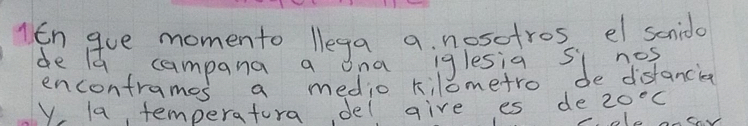 1 En que momento llega a nosotros el sonido
de la campana a una iglesia si nos
encontramos a medio kilometro de distancia
y la temperatura del aire es de 20°C